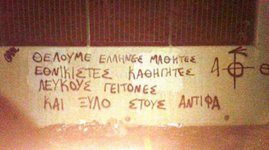 ΘΕΛΟΥΜΕ ΕΛΛΗΝΕΣ ΜΑΘΗΤΕΣ
ΕΘΝΙΚΙΣΤΕΣ ΚΑΘΗΓΗΤΕΣ
ΛΕΥΚΟΥΣ ΓΕΙΤΟΝΕΣ
ΚΑΙ ΞΥΛΟ ΣΤΟΥΣ ΑΝΤΙΦΑ